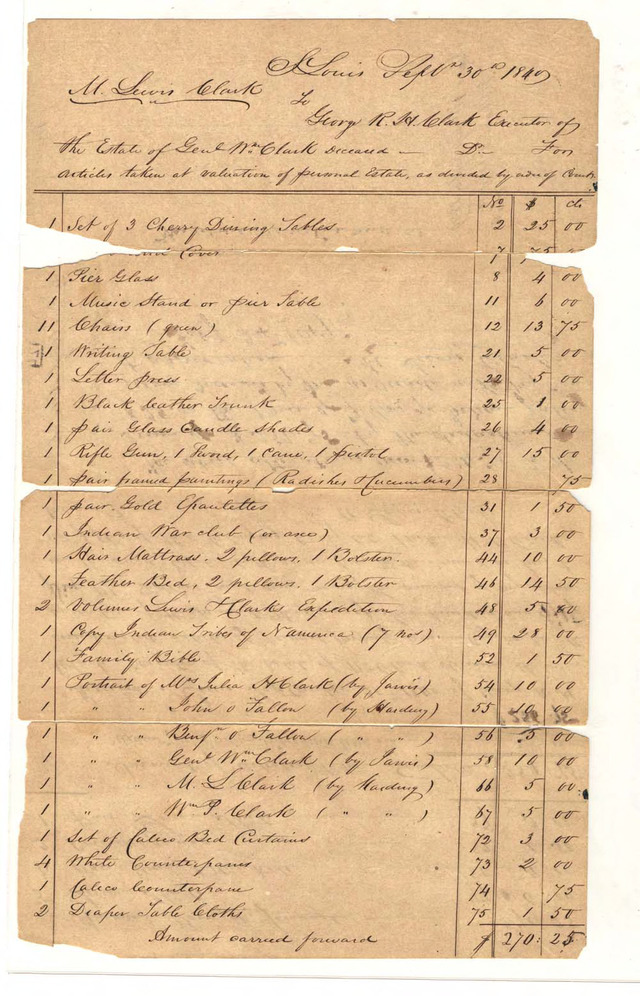 St Louis Septr 30th 1840
M. Lewis Clark
To
George R. H. Clark Executor of
the Estate of Genl Wm Clark Deceased — Dr — For
articles taken at valuation of personal Estate, as divided by order of Court
No $ cts
1 Set of 3 Cherry Dining Tables 2 25 00
Cover 7 75 00
1 Pier Glass 8 4 00
1 Music Stand or pier Table 11 6 00
11 Chairs (green) 12 13 75
1 Writing Table 21 5 00
1 Letter press 22 5 00
1 Black leather Trunk 25 1 00
1 pair Glass Candle shades 26 4 00
1 Rifle Gun, 1 Sword, 1 cane, 1 pistol 27 15 00
1 pair framed paintings (Radishes & Cucumbers) 28 75
1 pair Gold Epaulettes 31 1 50
1 Indian War club (or axe) 37 3 00
1 Hair Mattrass, 2 pillows, 1 Bolster. 44 10 00
1 Feather Bed, 2 pillows, 1 Bolster 46 14 50
2 Volumes Lewis & Clarks Expedition 48 5 00
1 Copy Indian Tribes of N America (7 nos). 49 28 00
1 Family Bible 52 1 50
1 Portrait of Mrs Julia H Clark (by Jarvis) 54 10 00
1 " " John O Fallon (by Harding) 55 10 00
1 " " Benjn O Fallon ( " " ) 56 5 00
1 " " Genl Wm Clark (by Jarvis) 58 10 00
1 " " M. L Clark (by Harding) 66 5 00
1 " " Wm P. Clark ( " " ) 67 5 00
1 Set of Calico Bed Curtains 72 3 00
4 White Counterpanes 73 2 00
1 Calico Counterpane 74 75
2 Diaper Table Cloths 75 1 50
Amount carried forward $ 270: 25